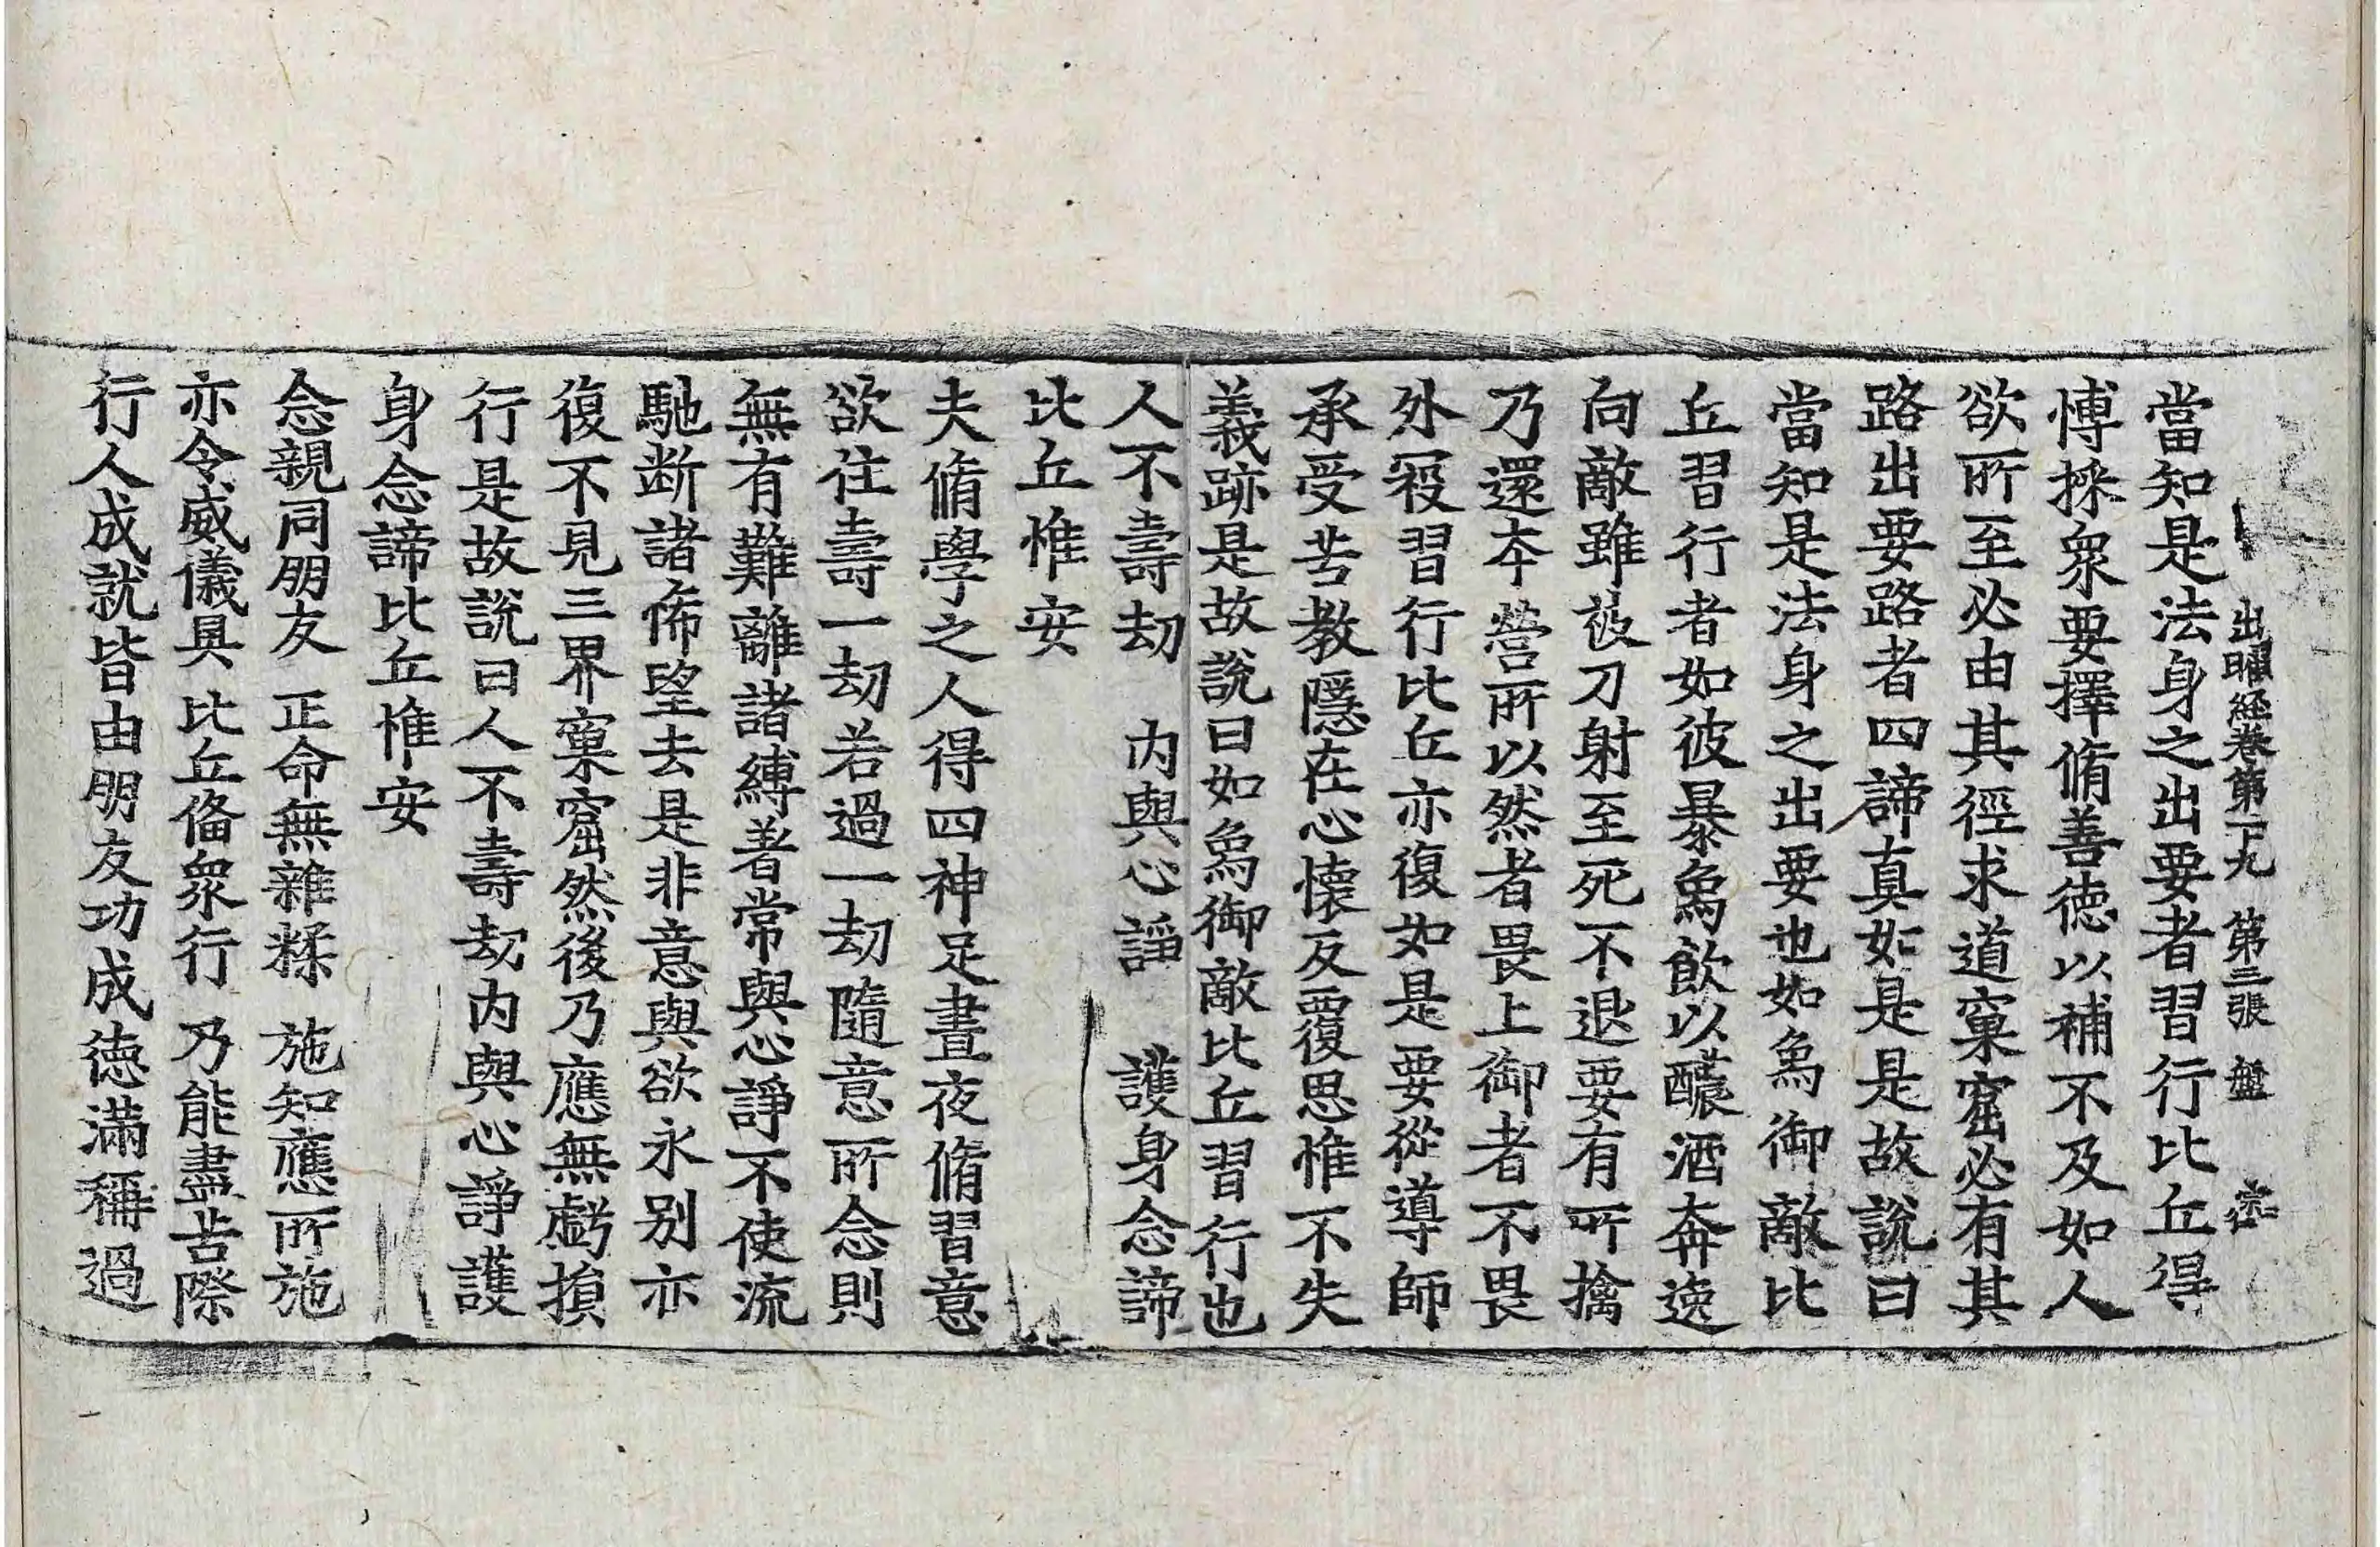 出曜經卷第十九　第三張　盤
當知是法身之出要者習行比丘得
愽採衆要擇脩善德以補不及如人
欲所至必由其徑求道窠窟必有其
路出要路者四諦真如是是故說曰
當知是法身之出要也如象御敵比
丘習行者如彼暴象飲以醲酒奔逸
向敵雖被刀射至死不退要有所擒
乃還本營所以然者畏上御者不畏
外寇習行比丘亦復如是要從導師
承受苦教隱在心懷反覆思惟不失
義跡是故說曰如象御敵比丘習行也
人不壽劫　內與心諍　護身念諦
比丘惟安
夫脩學之人得四神足晝夜脩習意
欲住壽一劫若過一劫隨意所念則
無有難離諸縛著常與心諍不使流
馳断諸悕望去是非意與欲永別亦
復不見三界窠窟然後乃應無虧損
行是故說曰人不壽劫內與心諍護
身念諦比丘惟安
念親同朋友　正命無雜糅　施知應所施
亦令威儀具　比丘俻衆行　乃能盡苦際
行人成就皆由朋友功成德滿稱過